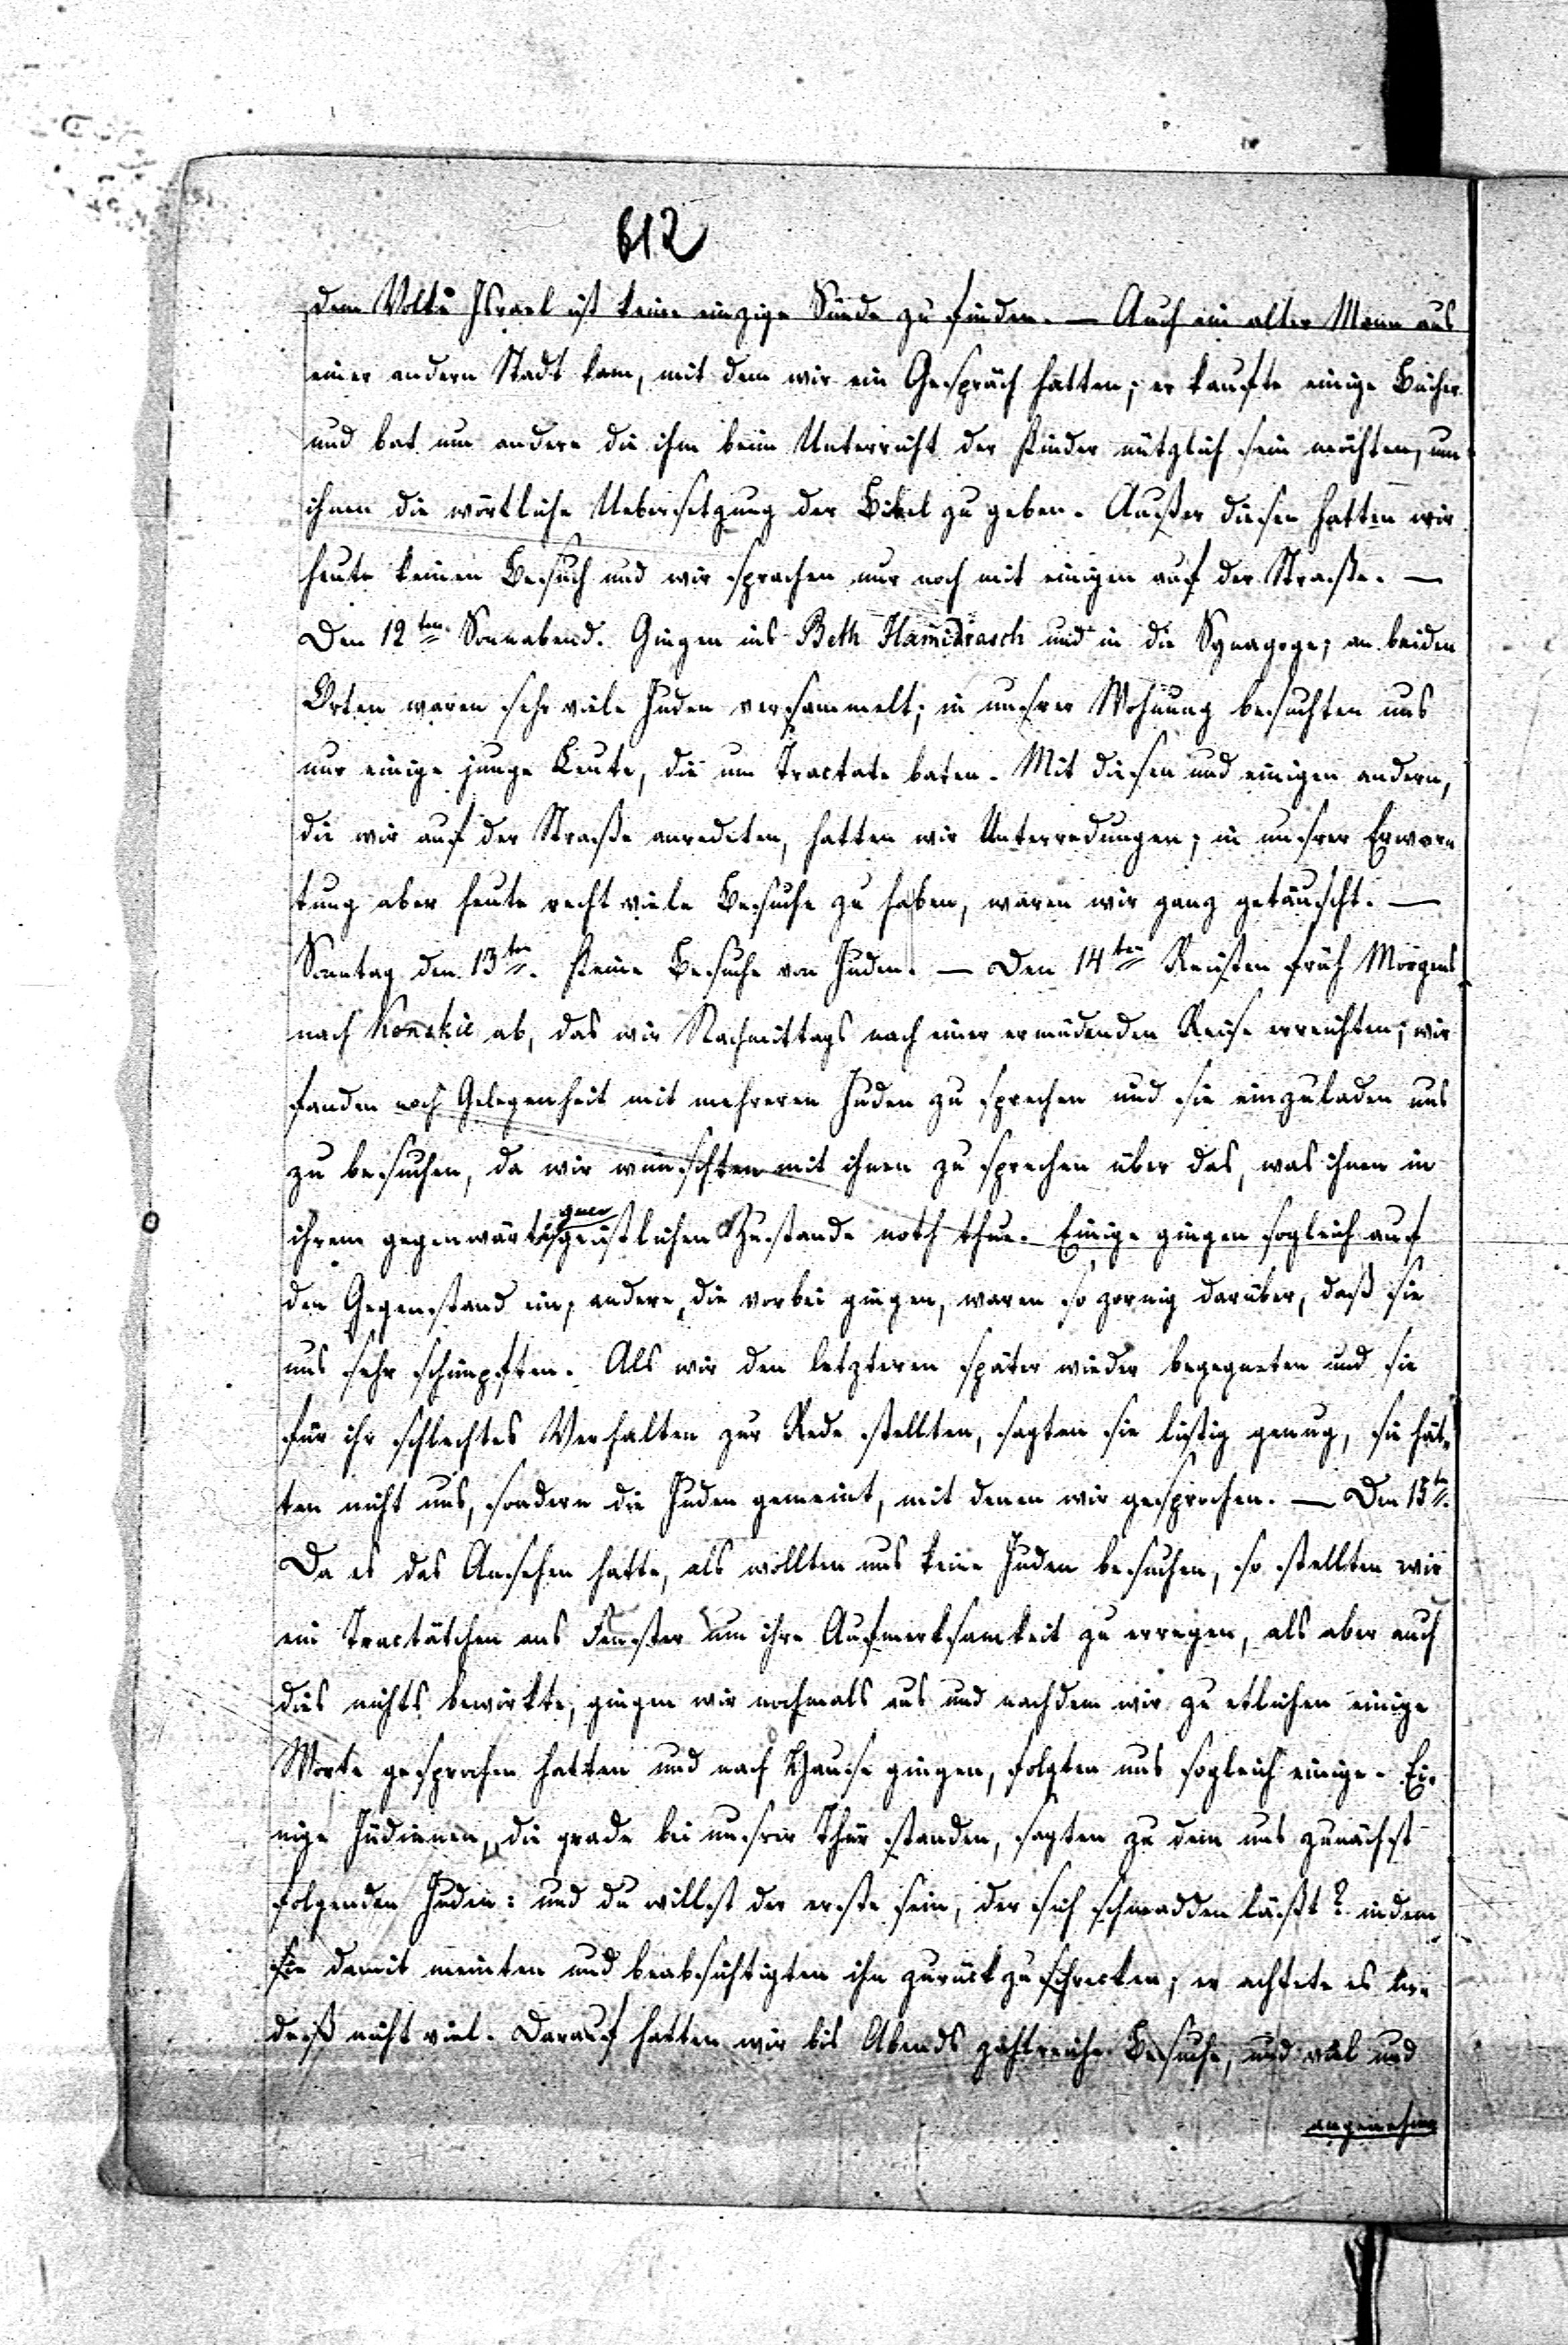 612
dem Volke Israel ist keine einzige Sünde zu finden. — Auch ein alter Mann aus
einer andern Stadt kam, mit dem wir ein Gespräch hatten; er kaufte einige Bücher
und bat um andere die ihm beim Unterricht der Kinder nützlich sein möchten, um
ihnen die wörtliche Uebersetzung der Bibel zu geben. Außer diesen hatten wir
heute keinen Besuch und wir sprachen nur noch mit einigen auf der Straße. —
Den 12ten Sonnabend. Gingen ins Beth Hamidrasch und in die Synagoge; an beiden
Orten waren sehr viele Juden versammelt; in unsrer Wohnung besuchten uns
nur einige junge Leute, die um Tractate baten. Mit diesen und einigen andern,
die wir auf der Straße anredeten, hatten wir Unterredungen; in unsrer Erwar-
tung aber heute recht viele Besuche zu haben, waren wir ganz getäuscht. —
Sonntag den 13ten. Keine Besuche von Juden. — Den 14ten Reisten früh Morgens
nach Konskie ab, das wir Nachmittags nach einer ermüdenden Reise erreichten; wir
fanden noch Gelegenheit mit mehreren Juden zu sprechen und sie einzuladen uns
zu besuchen, da wir wünschten mit ihnen zu sprechen über das, was ihnen in
ihrem gegenwärtigen geistlichen Zustande noth thue. Einige gingen sogleich auf
den Gegenstand ein, andere, die vorbei gingen, waren so zornig darüber, daß sie
uns sehr schimpften. Als wir den letzteren später wieder begegneten und sie
für ihr schlechtes Verhalten zur Rede stellten, sagten sie listig genug, sie hät-
ten nicht uns, sondern die Juden gemeint, mit denen wir gesprochen. — Den 15ten.
Da es das Ansehen hatte, als wollten uns keine Juden besuchen, so stellten wir
ein Tractätchen ans Fenster um ihre Aufmerksamkeit zu erregen, als aber auch
dies nichts bewirkte, gingen wir nochmals aus und nachdem wir zu etlichen einige
Worte gesprochen hatten und nach Hause gingen, folgten uns sogleich einige. Ei-
nige Jüdinnen, die grade bei unsrer Thür standen, sagten zu dem uns zunächst
folgenden Juden: und du willst der erste sein, der sich schmadden läßt? indem
sie damit meinten und beabsichtigten ihn zurückzuschrecken; er achtete es in-
deß nicht viel. Darauf hatten wir bis Abends zahlreiche Besuche, und viel und
angenehme